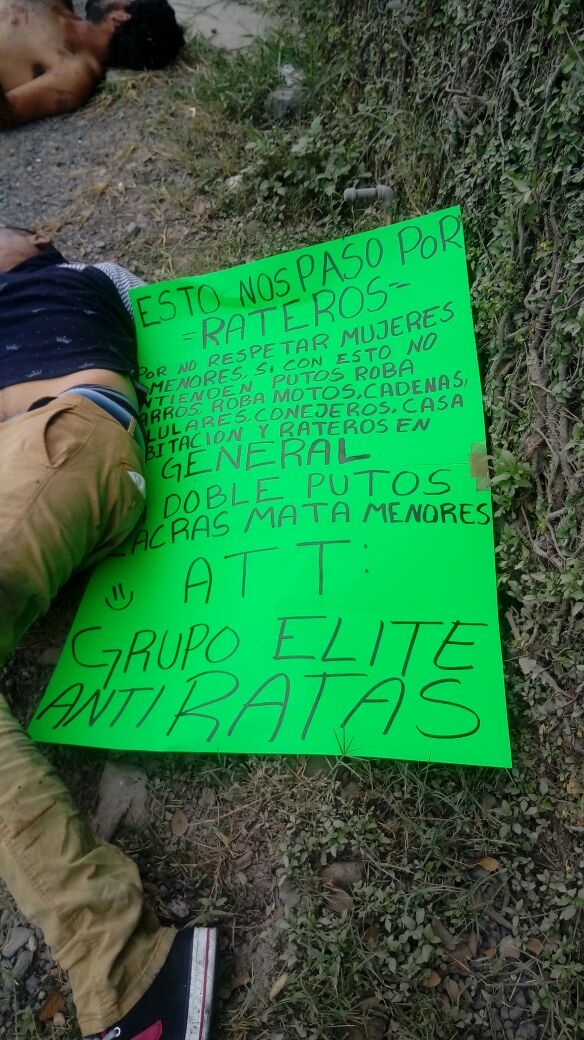 ESTO NOS PASO POR
=RATEROS=
POR NO RESPETAR MUJERES
MENORES, SI CON ESTO NO
NTIENDEN PUTOS ROBA
ARROS, ROBA MOTOS, CADENAS,
LULARES, CONEJEROS, CASA
BITACION Y RATEROS EN
GENERAL
DOBLE PUTOS
LACRAS MATA MENORES
ATT:
GRUPO ELITE
ANTI RATAS